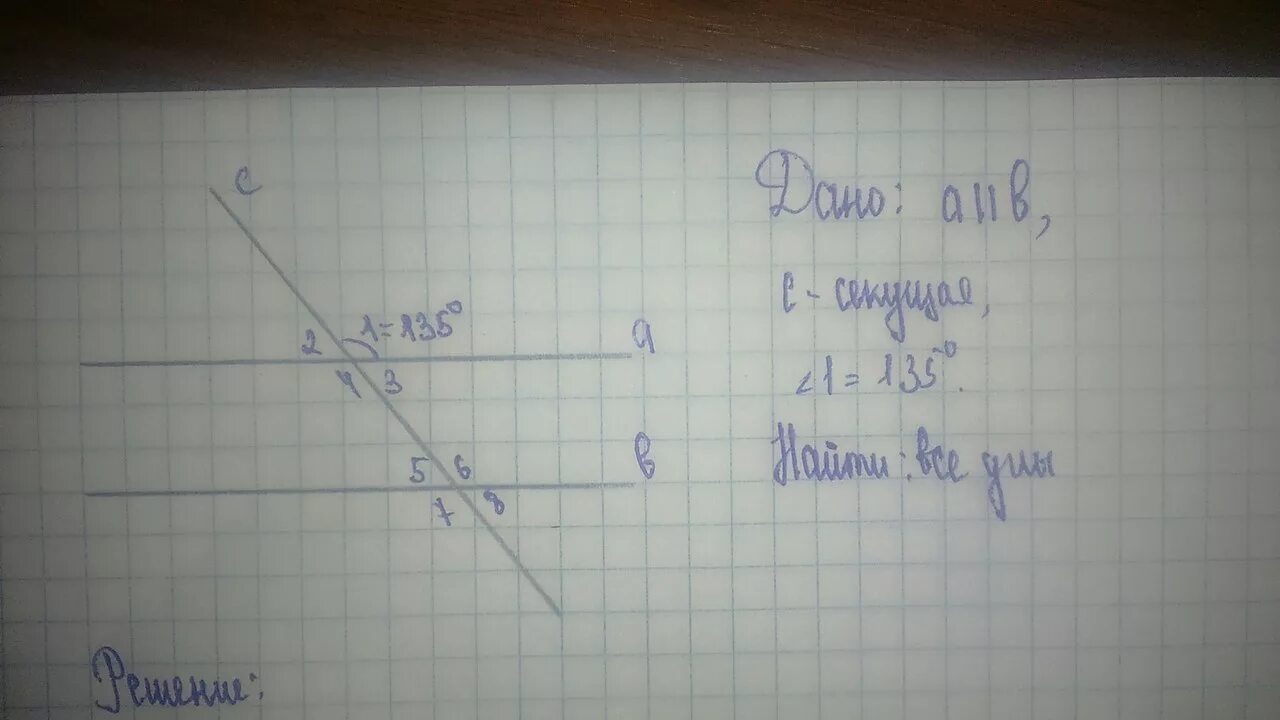 c
Дано: a || в,
с - секущая,
2 1 = 135° a
∠1 = 135°.
4 3
в
Найти: все углы
5 6
7 8
Решение: